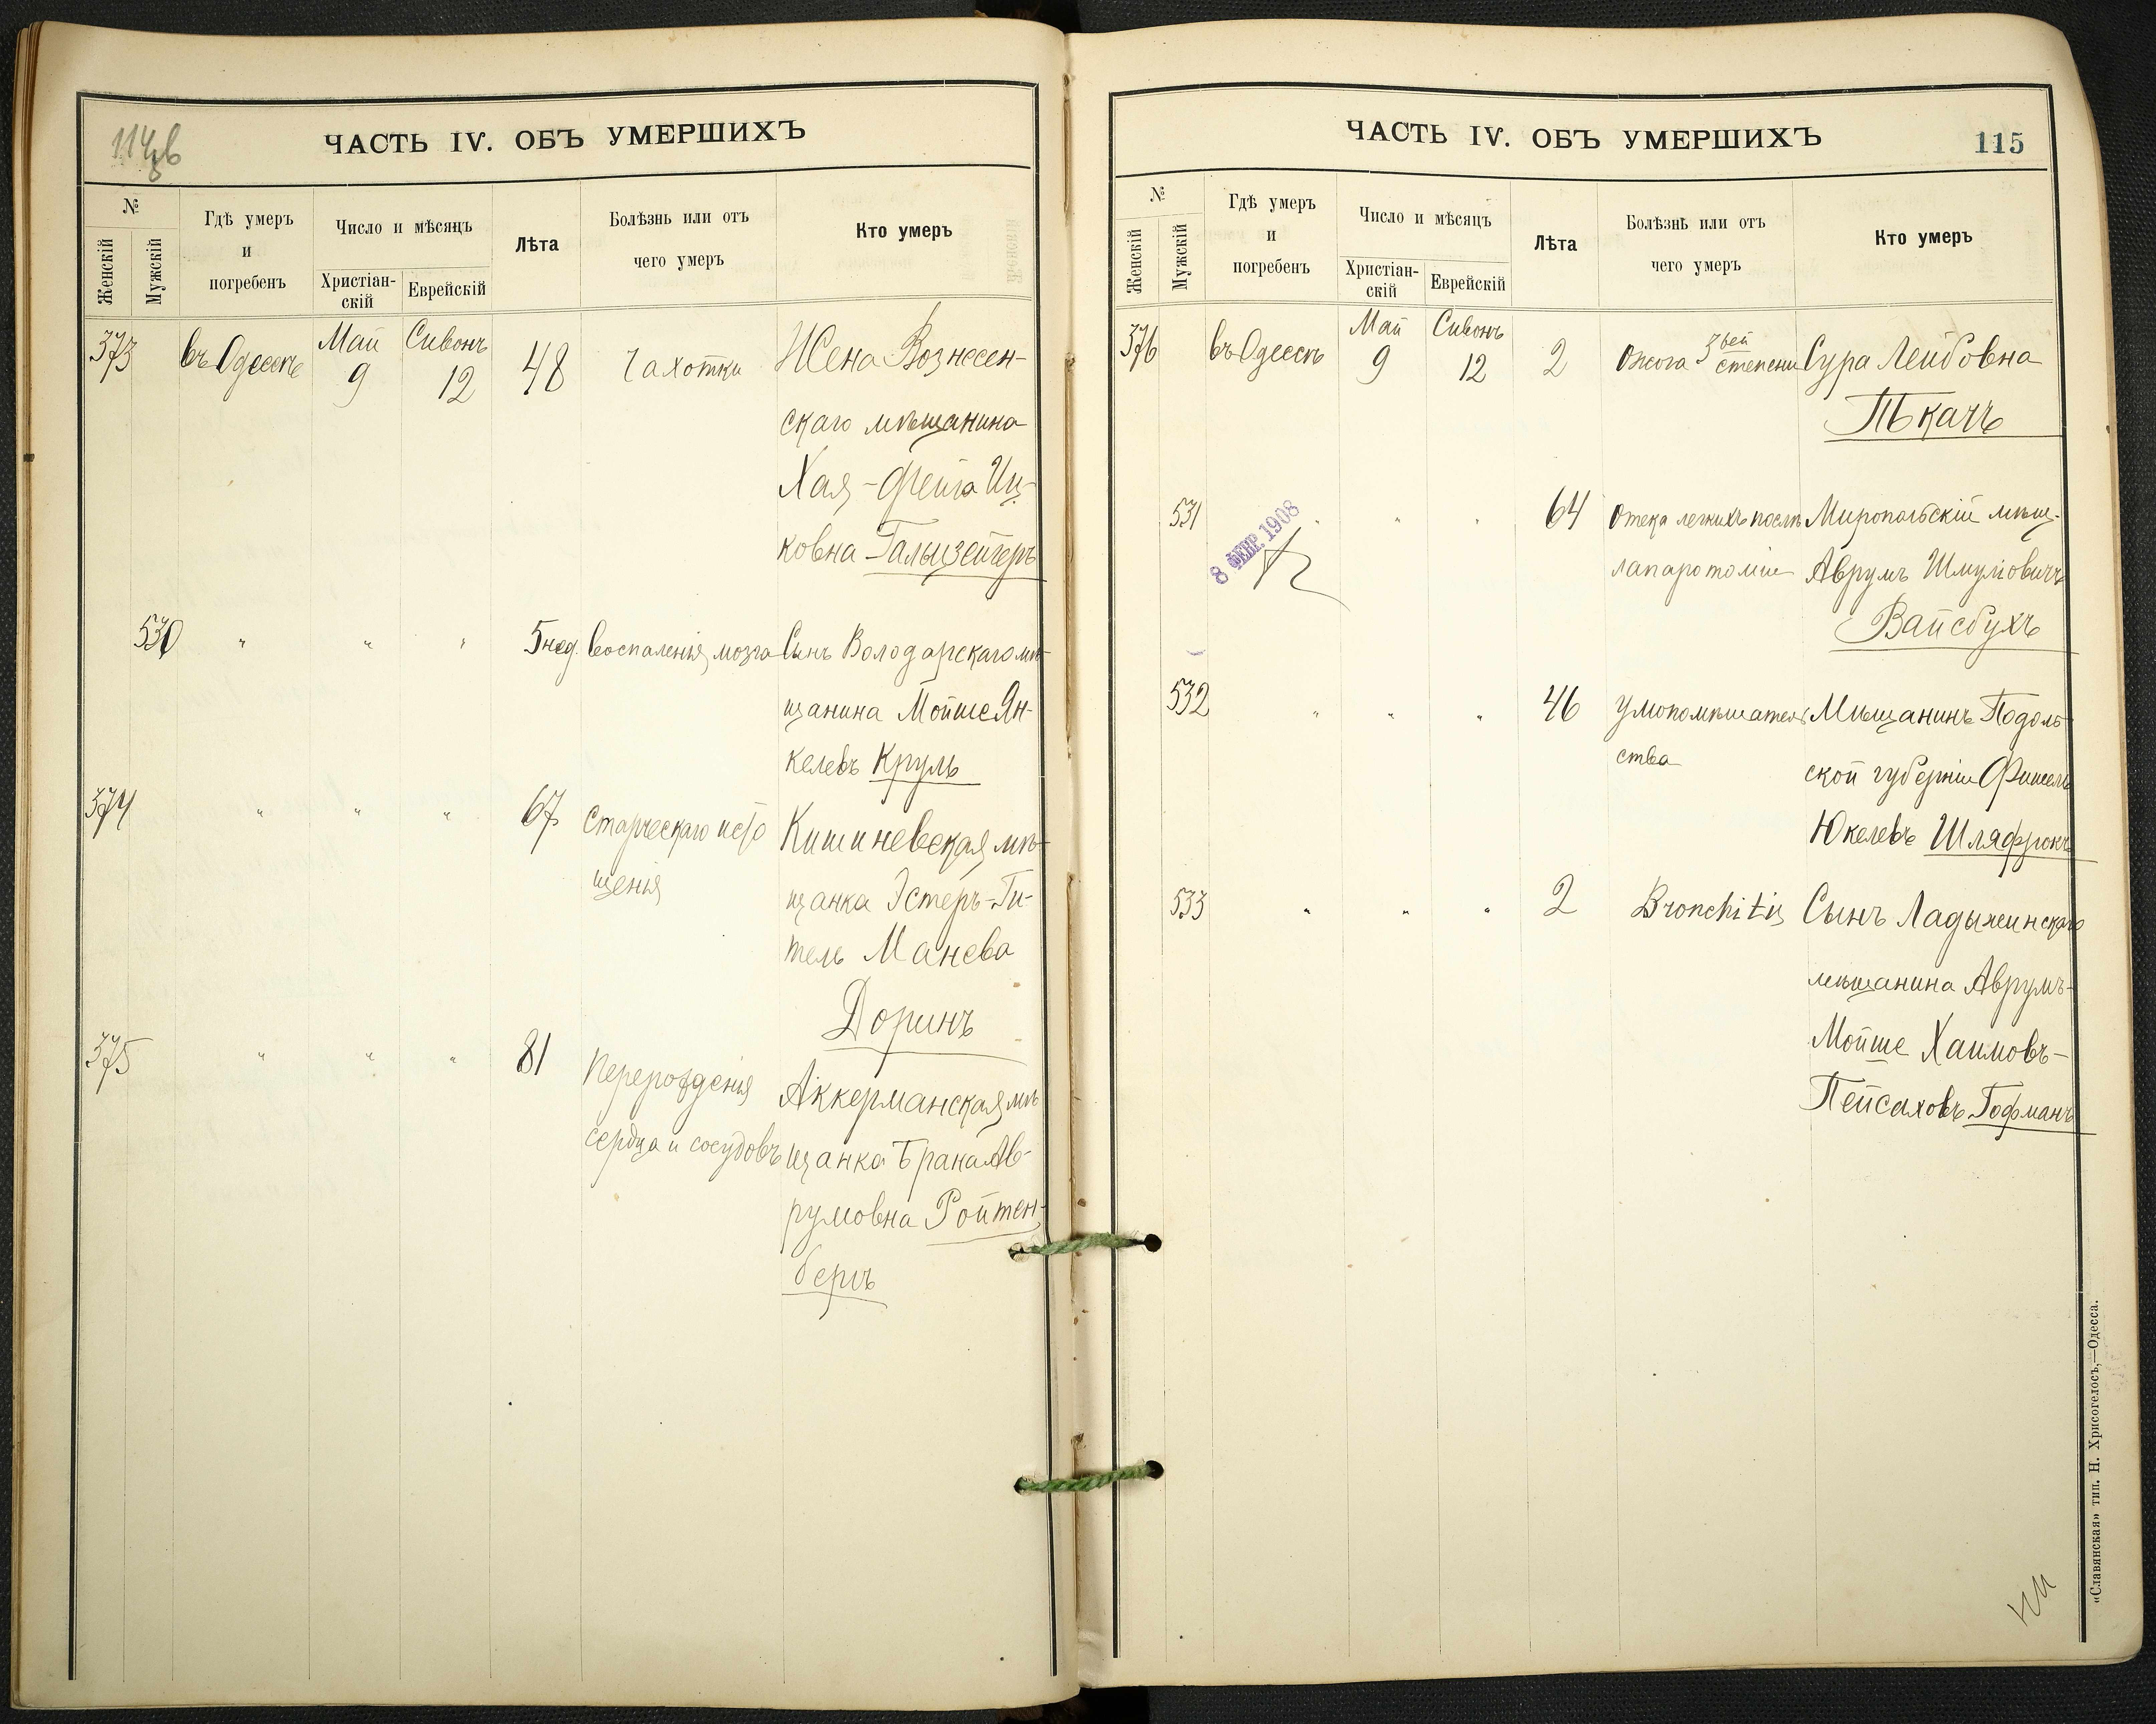 114 об
ЧАСТЬ IV. ОБЪ УМЕРШИХЪ
№
Женскій
Мужскій
Гдѣ умеръ
и
погребенъ
Число и мѣсяцъ
Христіан-
скій
Еврейскій
Лѣта
Болѣзнь или отъ
чего умеръ
Кто умеръ
373 въ Одессѣ Май 9 Сивонъ 12 48 Чахотки Жена Вознесен-
скаго мѣщанина
Хая-Фейга Иц-
ковна Гальцзейгеръ
530 " " " 5 нед. Воспаленія мозга Сынъ Володарскаго мѣ-
щанина Мойше Ян-
келевъ Круль
374 " " " 67 Старческаго исто Кишиневская мѣ-
щенія щанка Эстеръ-Ги-
тель Манева
Доринъ
375 " " " 81 Перерождения Аккерманская мѣ
сердца и сосудовъ щанка Брана Ав-
румовна Ройтен-
бергъ
ЧАСТЬ IV. ОБЪ УМЕРШИХЪ
115
№
Женскій
Мужскій
Гдѣ умеръ
и
погребенъ
Число и мѣсяцъ
Христіан-
скій
Еврейскій
Лѣта
Болѣзнь или отъ
чего умеръ
Кто умеръ
376 въ Одессѣ Май 9 Сивонъ 12 2 Ожога 3ьей степени Сура Лейбовна
Ткачъ
531 " " " 64 Отека легкихъ послѣ Миропольскій мѣщ.
8 ФЕВР. 1908
лапаротоміи Аврумъ Шмулiовичъ
Вайсбухъ
532 " " " 46 Умопомѣшатель Мѣщанинъ Подоль
ства ской губерніи Фишель
Юкелевъ Шляфрокъ
533 " " " 2 Bronchitis Сынъ Ладыжинскаго
мѣщанина Аврумъ-
Мойше Хаимовъ-
Пейсаховъ Гофманъ
«Славянская» тип. Н. Хрисогелосъ,—Одесса.